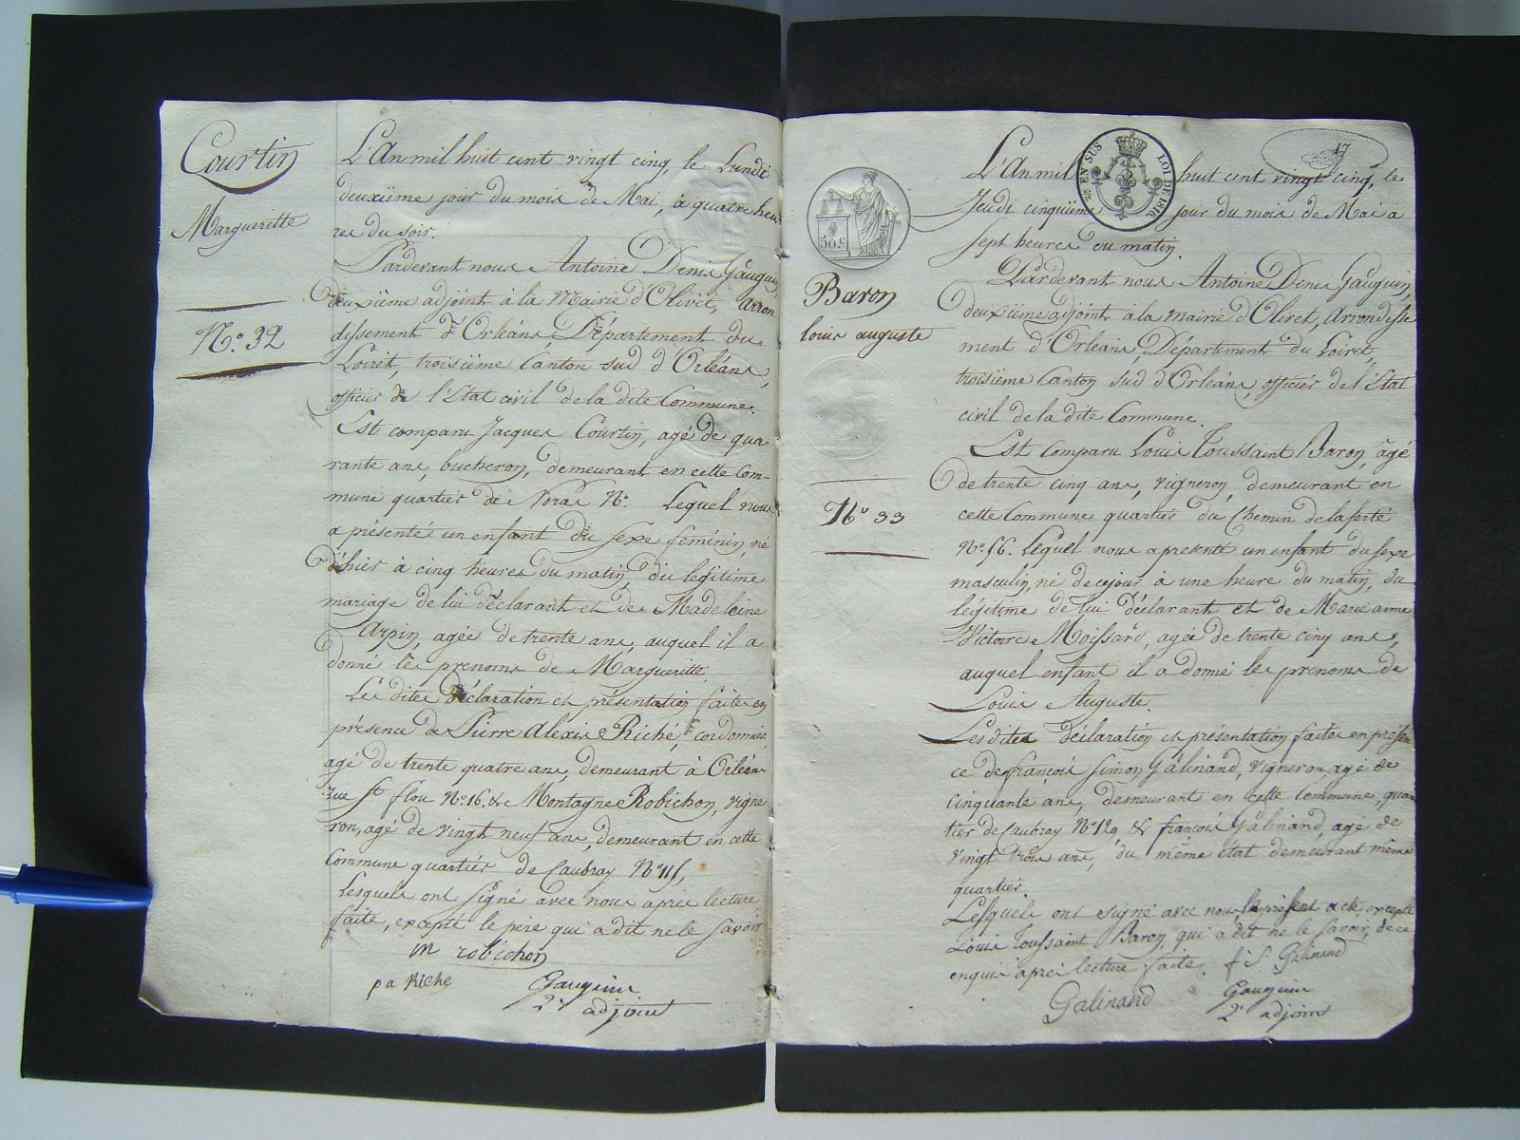 Courtin
Margueritte
N.o 32
L'An mil huit cent vingt cinq, le Lundi
deuxiéme jour du mois de Mai, à quatre heu
res du soir.
Pardevant nous Antoine Denis Gauguin,
deuxiéme adjoint à la Mairie d'Olivet, Arron
dissement d'Orléans, Département du
Loiret, troisiéme Canton sud d'Orléans,
officier de l'Etat civil de la dite Commune.
Est comparu Jacques Courtin, agé de qua
rante ans, bucheron, demeurant en cette Com-
mune quartier de N.o Lequel nous
a présenté un enfant du sexe féminin, né
d'hier à cinq heures du matin, du légitime
mariage de lui déclarant et de Madeleine
Arpin, agée de trente ans, auquel il a
donné les prenoms de Marguerite.
Les dites Déclaration et présentation faites en
présence de Pierre Alexis Riché, cordonnier,
agé de trente quatre ans, demeurant à Orléans
rue St flou N.o 16. & de Montagne Robichon, vigne
ron, agé de vingt neuf ans, demeurant en cette
Commune quartier de Caubray N.o 115,
Lesquels ont signé avec nous après lecture
faite, excepté le père qui a dit ne le savoir
m robichon
pa Riché
Gauguin
2e adjoint
17
EN SUS
LOI DE 1816
50 c
Baron
louis auguste
N.o 33
L'An mil huit cent vingt cinq, le
Jeudi cinquiéme jour du mois de Mai à
sept heures du matin.
Pardevant nous Antoine Denis Gauguin,
deuxiéme adjoint à la mairie d'Olivet, Arrondisse
ment d'Orléans, Département du Loiret,
troisiéme Canton sud d'Orléans, officier de l'Etat
civil de la dite Commune.
Est comparu Louis Toussaint Baron, âgé
de trente cinq ans, vigneron, demeurant en
cette Commune quartier du Chemin de la ferté
N.o 56. Lequel nous a présenté un enfant du sexe
masculin, né de ce jour à une heure du matin, du
légitime de lui déclarant et de Marie aimé
Victoire Moissard, agée de trente cinq ans,
auquel enfant il a donné les prenoms de
Louis Auguste.
Les dites déclaration et présentation faites en présen
ce de françois Simon Galinand, vigneron, agé de
cinquante ans, demeurant en cette Commune, quar
tier de Caubray N.o 129 & françois Galinand, agé de
vingt trois ans, du même état demeurant même
quartier.
Lesquels ont signé avec nous le présent acte, excepté
Louis Toussaint Baron, qui a dit ne le savoir, de ce
enquis après lecture faite. f S. Galinand
Galinand
Gauguin
2e adjoint